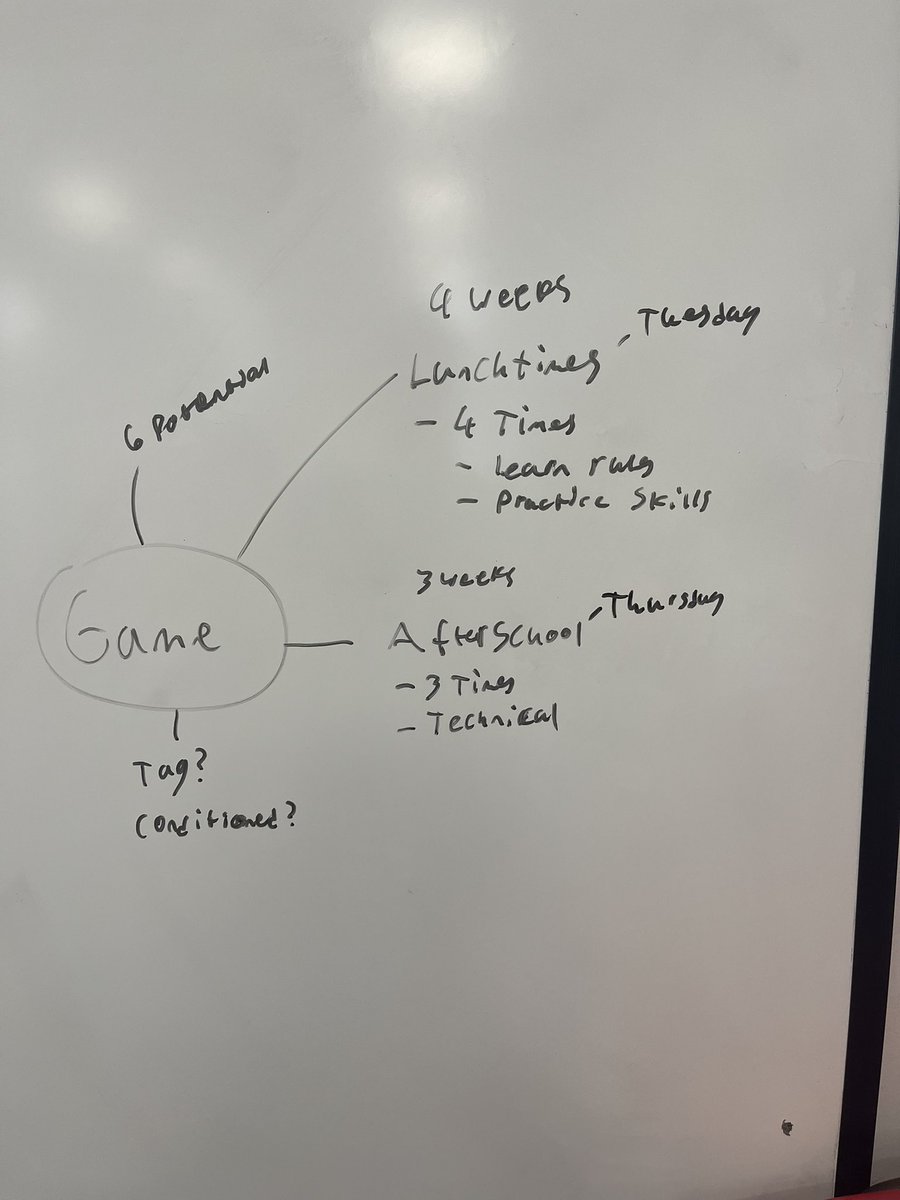 4 weeks
Lunchtimes, Tuesday
- 4 Times
- Learn rules
- Practice Skills
6 Potential
Game
3 weeks
AfterSchool, Thursday
- 3 Times
- Technical
Tag?
Conditioned?